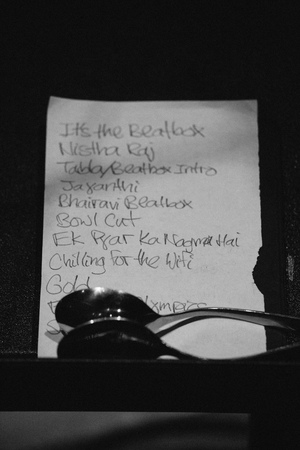 It's the Beatbox
Nistha Raj
Tabla/Beatbox Intro
Jayanthi
Bhairavi Beatbox
Bowl Cut
Ek Pyar Ka Nagmah Hai
Chilling for the Wifi
Gold